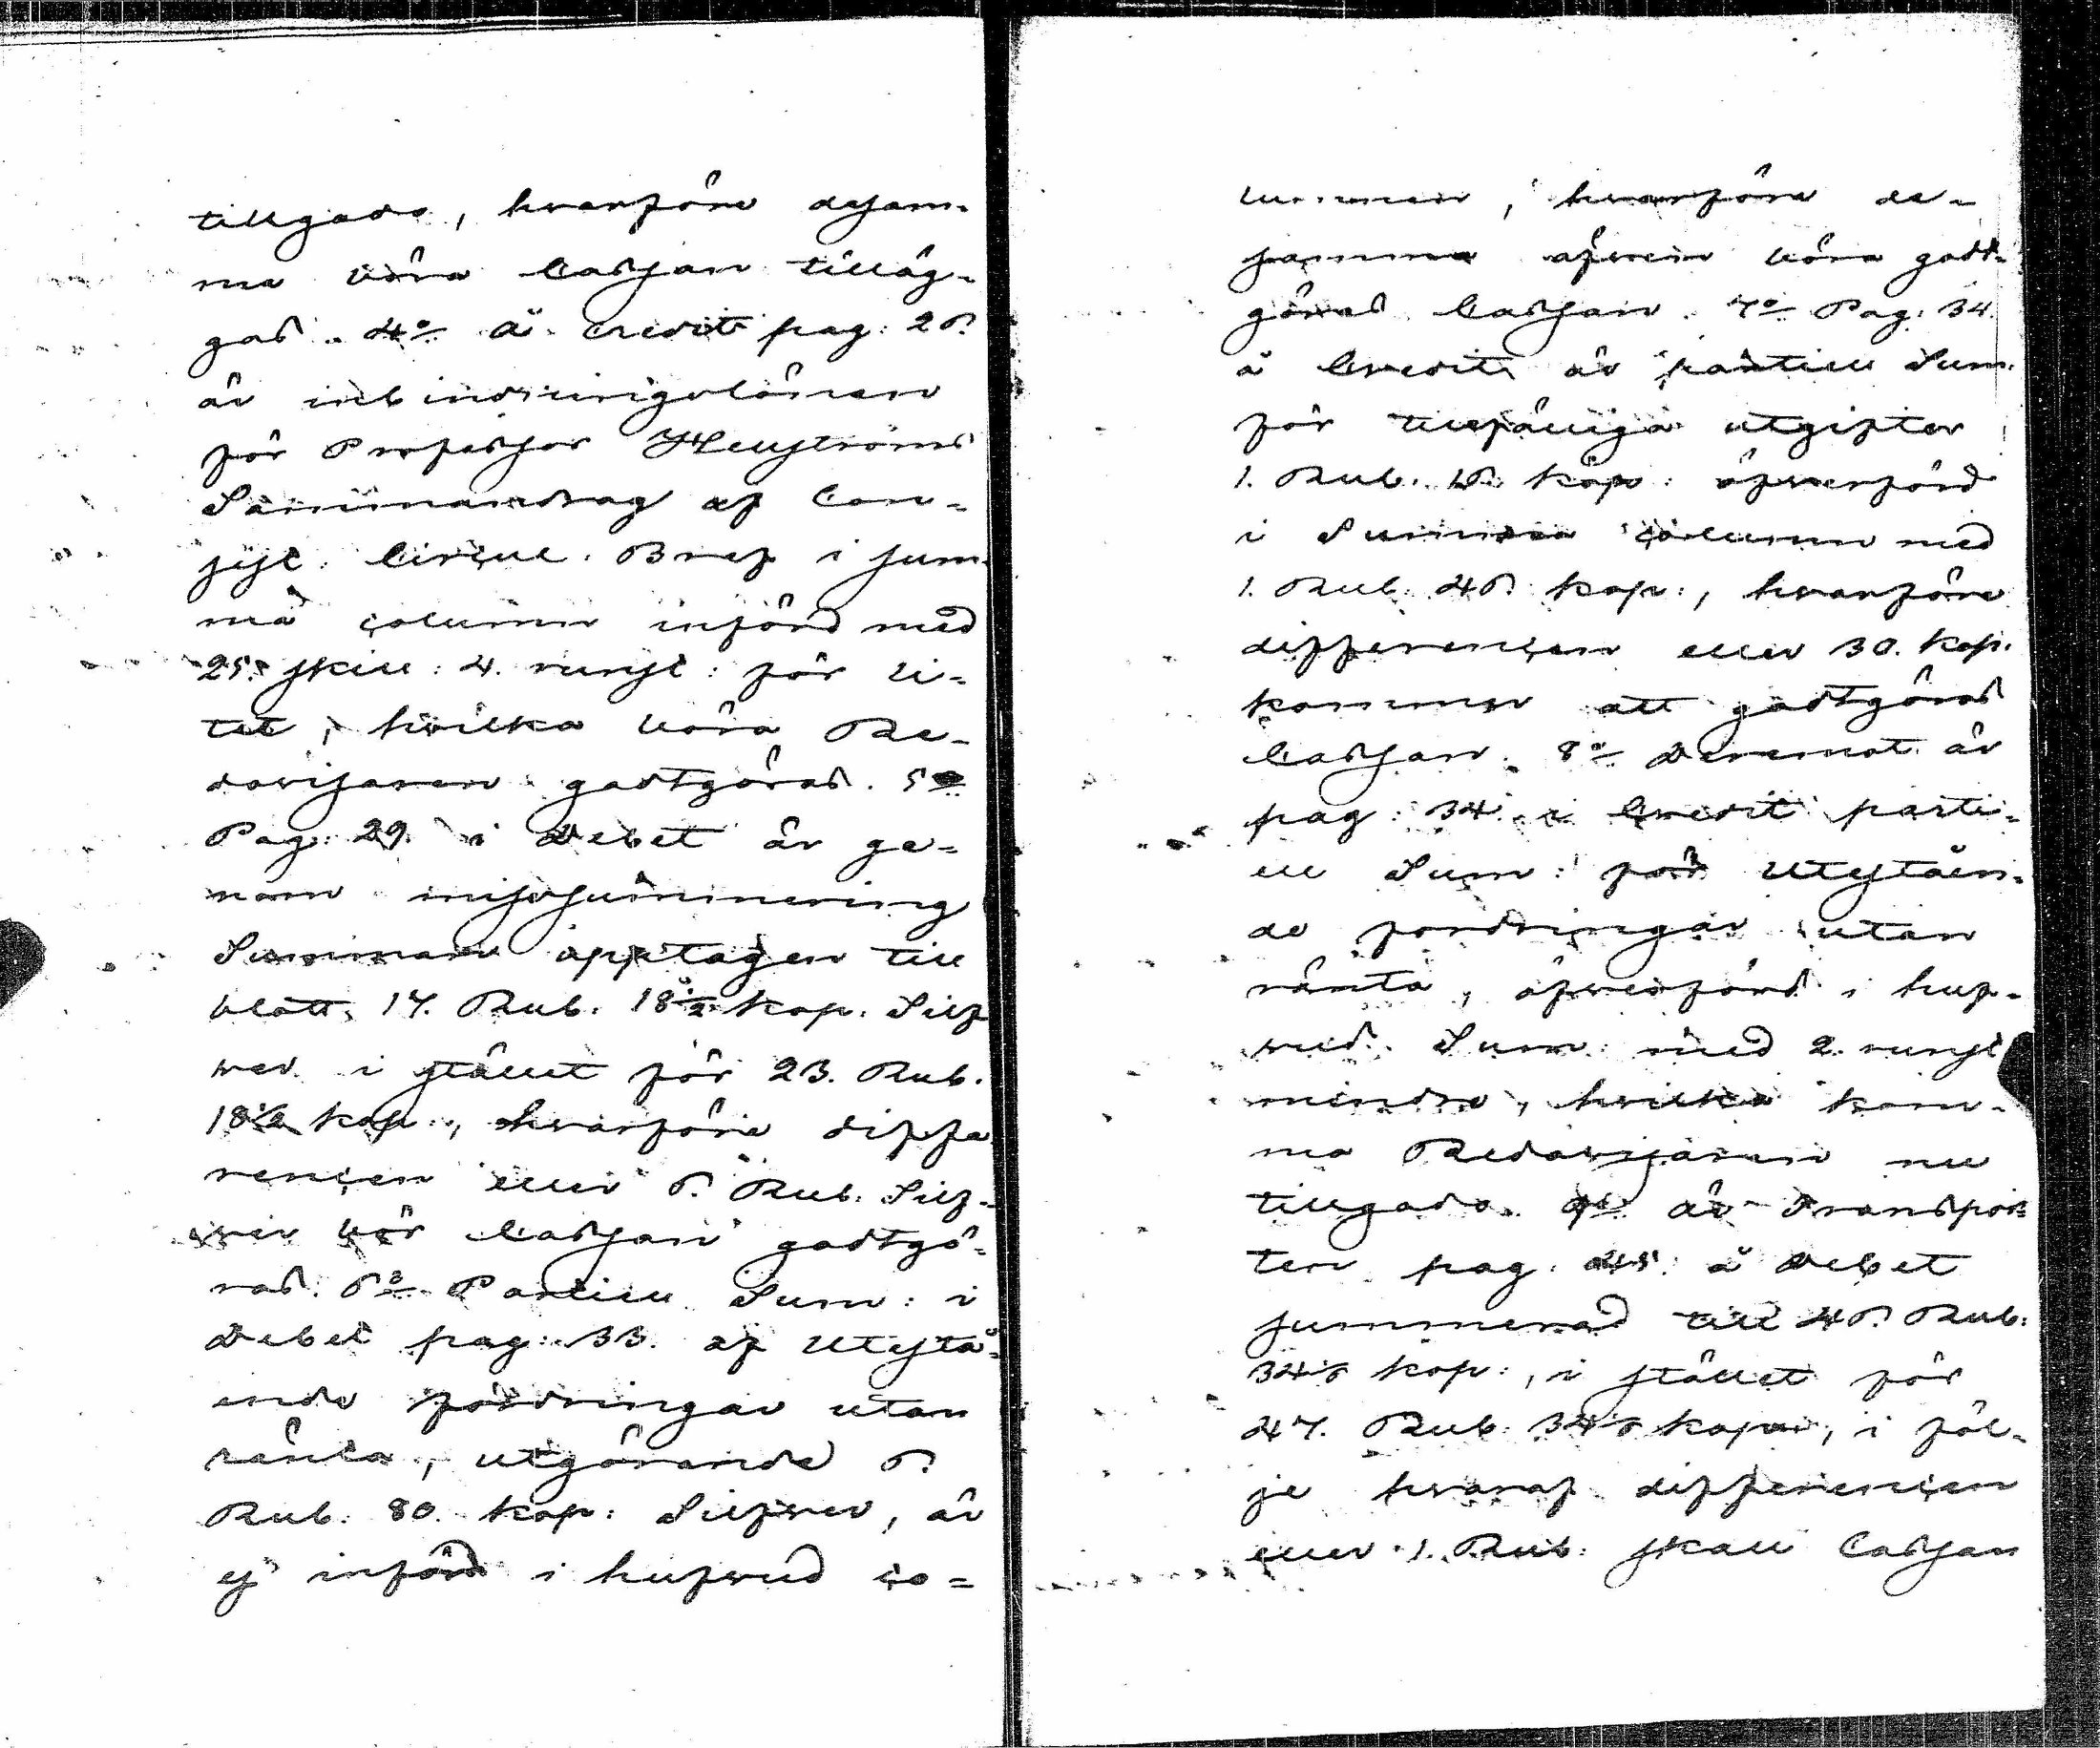 tillgodo, hvarföre desam-
ma böra Cassan tilläg-
gas. 4:o å Credit pag: 26.
är inbindningslönen
för Professor Hellströms
Sammandrag af Con-
sist. Circul. Bref i sum-
ma column införd med
25. skill: 4. runst: för li-
tet, hvilka böra Re-
dovisaren godtgöras. 5:o
Pag: 29. i Debet är ge-
nom missummering
Summan opptagen till
blott 17. Rub. 18 1/2 kop. Silf-
wer i stället för 23. Rub.
18 1/2 kop:, hvarföre diffe-
rencen eller 6. Rub. Silf-
wer bör Cassan godtgö-
ras. 6:o Partiell Sum: i
Debet pag: 33. af Utestå-
ende fordringar utan
ränta, utgörande 6.
Rub. 80. kop: Silfwer, är
ej införd i hufwud co-
lumnen, hvarföre de-
samma äfwen böra godt-
göras Cassan. 7:o Pag: 34.
å Credit är partiell Sum.
för tillfälliga utgifter
1. Rub. kop: öfwerförd
i Summa column med
1. Rub. 46. kop:, hvarföre
differencen eller 30. kop.
kommer att godtgöras
Cassan. 8:o Deremot är
pag: 34. i Credit parti-
ell Sum: för Utestäen-
de fordringar utan
ränta, öfwerförd i huf-
wud. Sum: med 2. runst
mindre, hvilka kom-
ma Redovisaren nu
tillgodo. 9:o är Transpor-
ten pag. 45. å Debet
summerad till 46. Rub:
34 kop:, i stället för
47. Rub: 34 kop:, i föl-
je hvaraf differencen
eller 1. Rub: skall Cassan